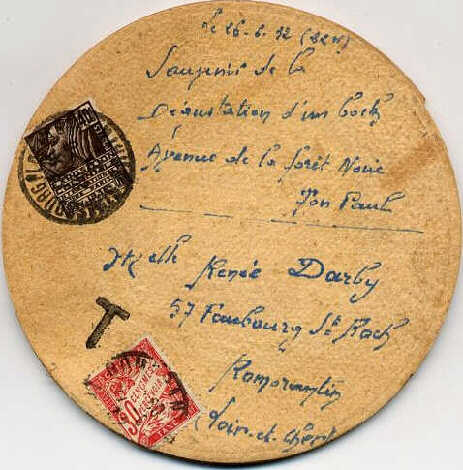 le 26-6-32 (22h)
Souvenir de la
Dégustation d'un bock
Avenue de la forêt Noire
Ton Paul
Mlle Renée Darby
57 Faubourg St Roch
Romorantin
(Loir-et-Cher)
T